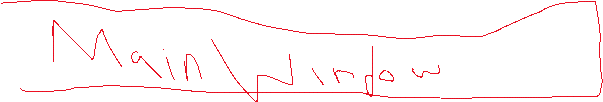 Main Window